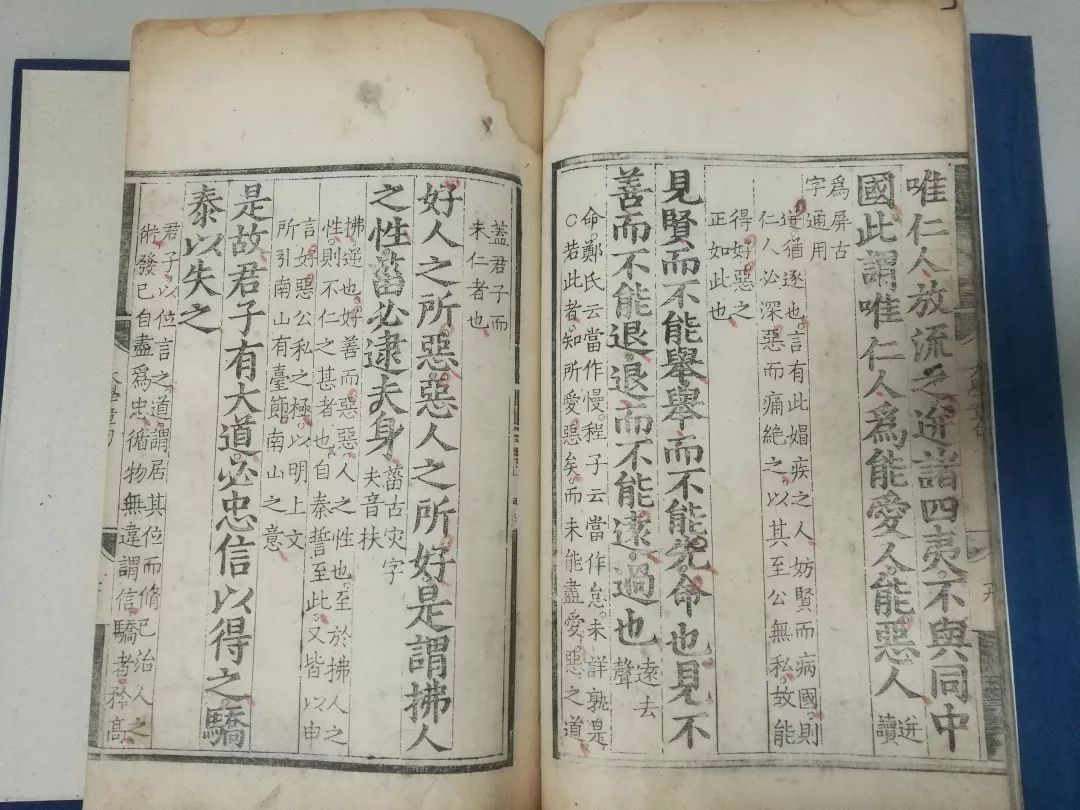 唯仁人放流之迸諸四夷不與同中
國此謂唯仁人爲能愛人能惡人
迸讀
爲屏古
字通用
迸猶逐也言有此媢疾之人妨賢而病國則
仁人必深惡而痛絶之以其至公無私故能
得好惡之
正如此也
見賢而不能舉舉而不能先命也見不
善而不能退退而不能遠過也
遠去
聲
命鄭氏云當作慢程子云當作怠未詳孰是
○若此者知所愛惡矣而未能盡愛惡之道
蓋君子而
未仁者也
好人之所惡惡人之所好是謂拂人
之性菑必逮夫身
菑古灾字
夫音扶
拂逆也好善而惡惡人之性也至於拂人之
性則不仁之甚者也自秦誓至此又皆以申
言好惡公私之極以明上文
所引南山有臺節南山之意
是故君子有大道必忠信以得之驕
泰以失之
君子以位言之道謂居其位而脩己治人之
術發己自盡爲忠循物無違謂信驕者矜高